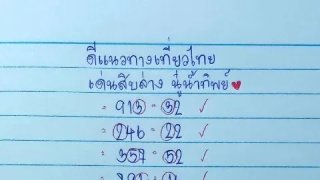 ดีแนวทางเที่ยวไทย
เด่นสิบล่าง นู๋น้ำทิพย์
= 913 = 32 ✓
= 246 = 22 ✓
= 357 = 52 ✓